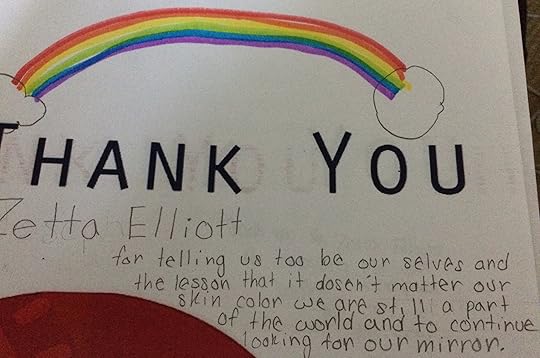 THANK YOU
Zetta Elliott
for telling us too be our selves and
the lesson that it dosen't matter our
skin color we are still a part
of the world and to continue
looking for our mirror.